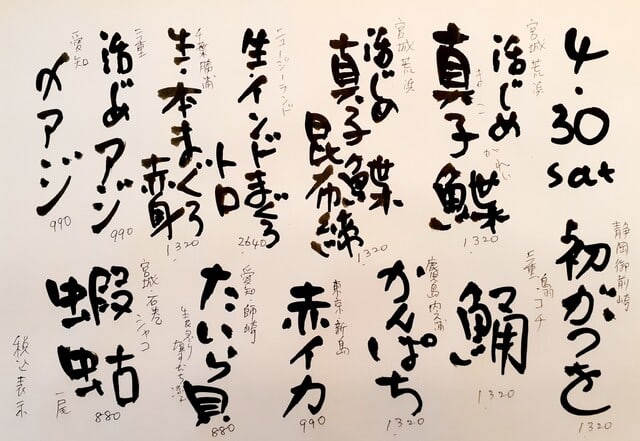 4・30
sat
宮城 荒浜
活じめ
真子鰈
まこがれい
1320
宮城 荒浜
活じめ
真子鰈
昆布締
1320
ニュージーランド
生・インドまぐろ
トロ
2640
千葉 勝浦
生・本まぐろ
赤身
1320
三重
活じめアジ
990
愛知
〆アジ
990
静岡 御前崎
初がつを
1320
三重
コチ
1320
鹿児島 内之浦
かんぱち
1320
東京 新島
赤イカ
990
愛知 師崎
たいら貝
880
宮城・石巻
シャコ
蝦蛄
一尾
880
税込表示